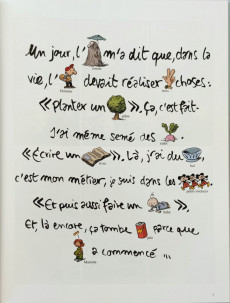 Un jour, l' m'a dit que, dans la
vie, l' devait réaliser choses :
« planter un ». Ça, c'est fait.
J'ai même semé des .
« Écrire un ». Là, j'ai du ,
c'est mon métier, je suis dans les .
« Et puis aussi faire un ».
Et, là encore, ça tombe parce que
a commencé ...